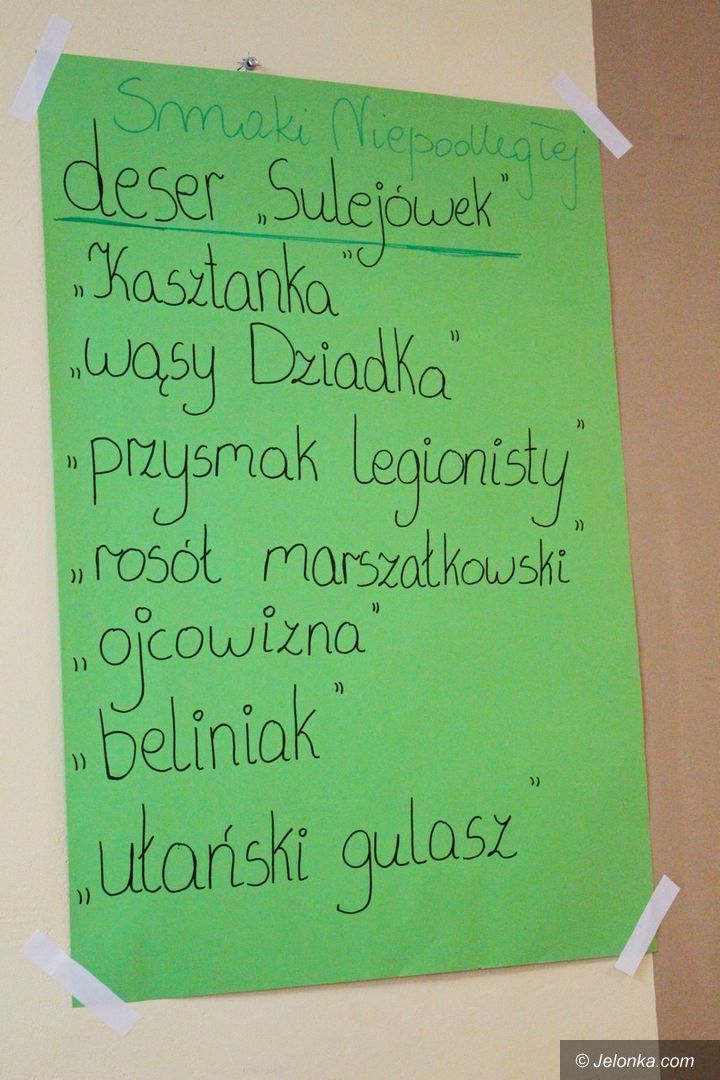 Smaki Niepodległej
deser „Sulejówek”
„Kasztanka”
„wąsy Dziadka”
„przysmak legionisty”
„rosół marszałkowski”
„ojcowizna”
„beliniak”
„ułański gulasz”
© Jelonka.com